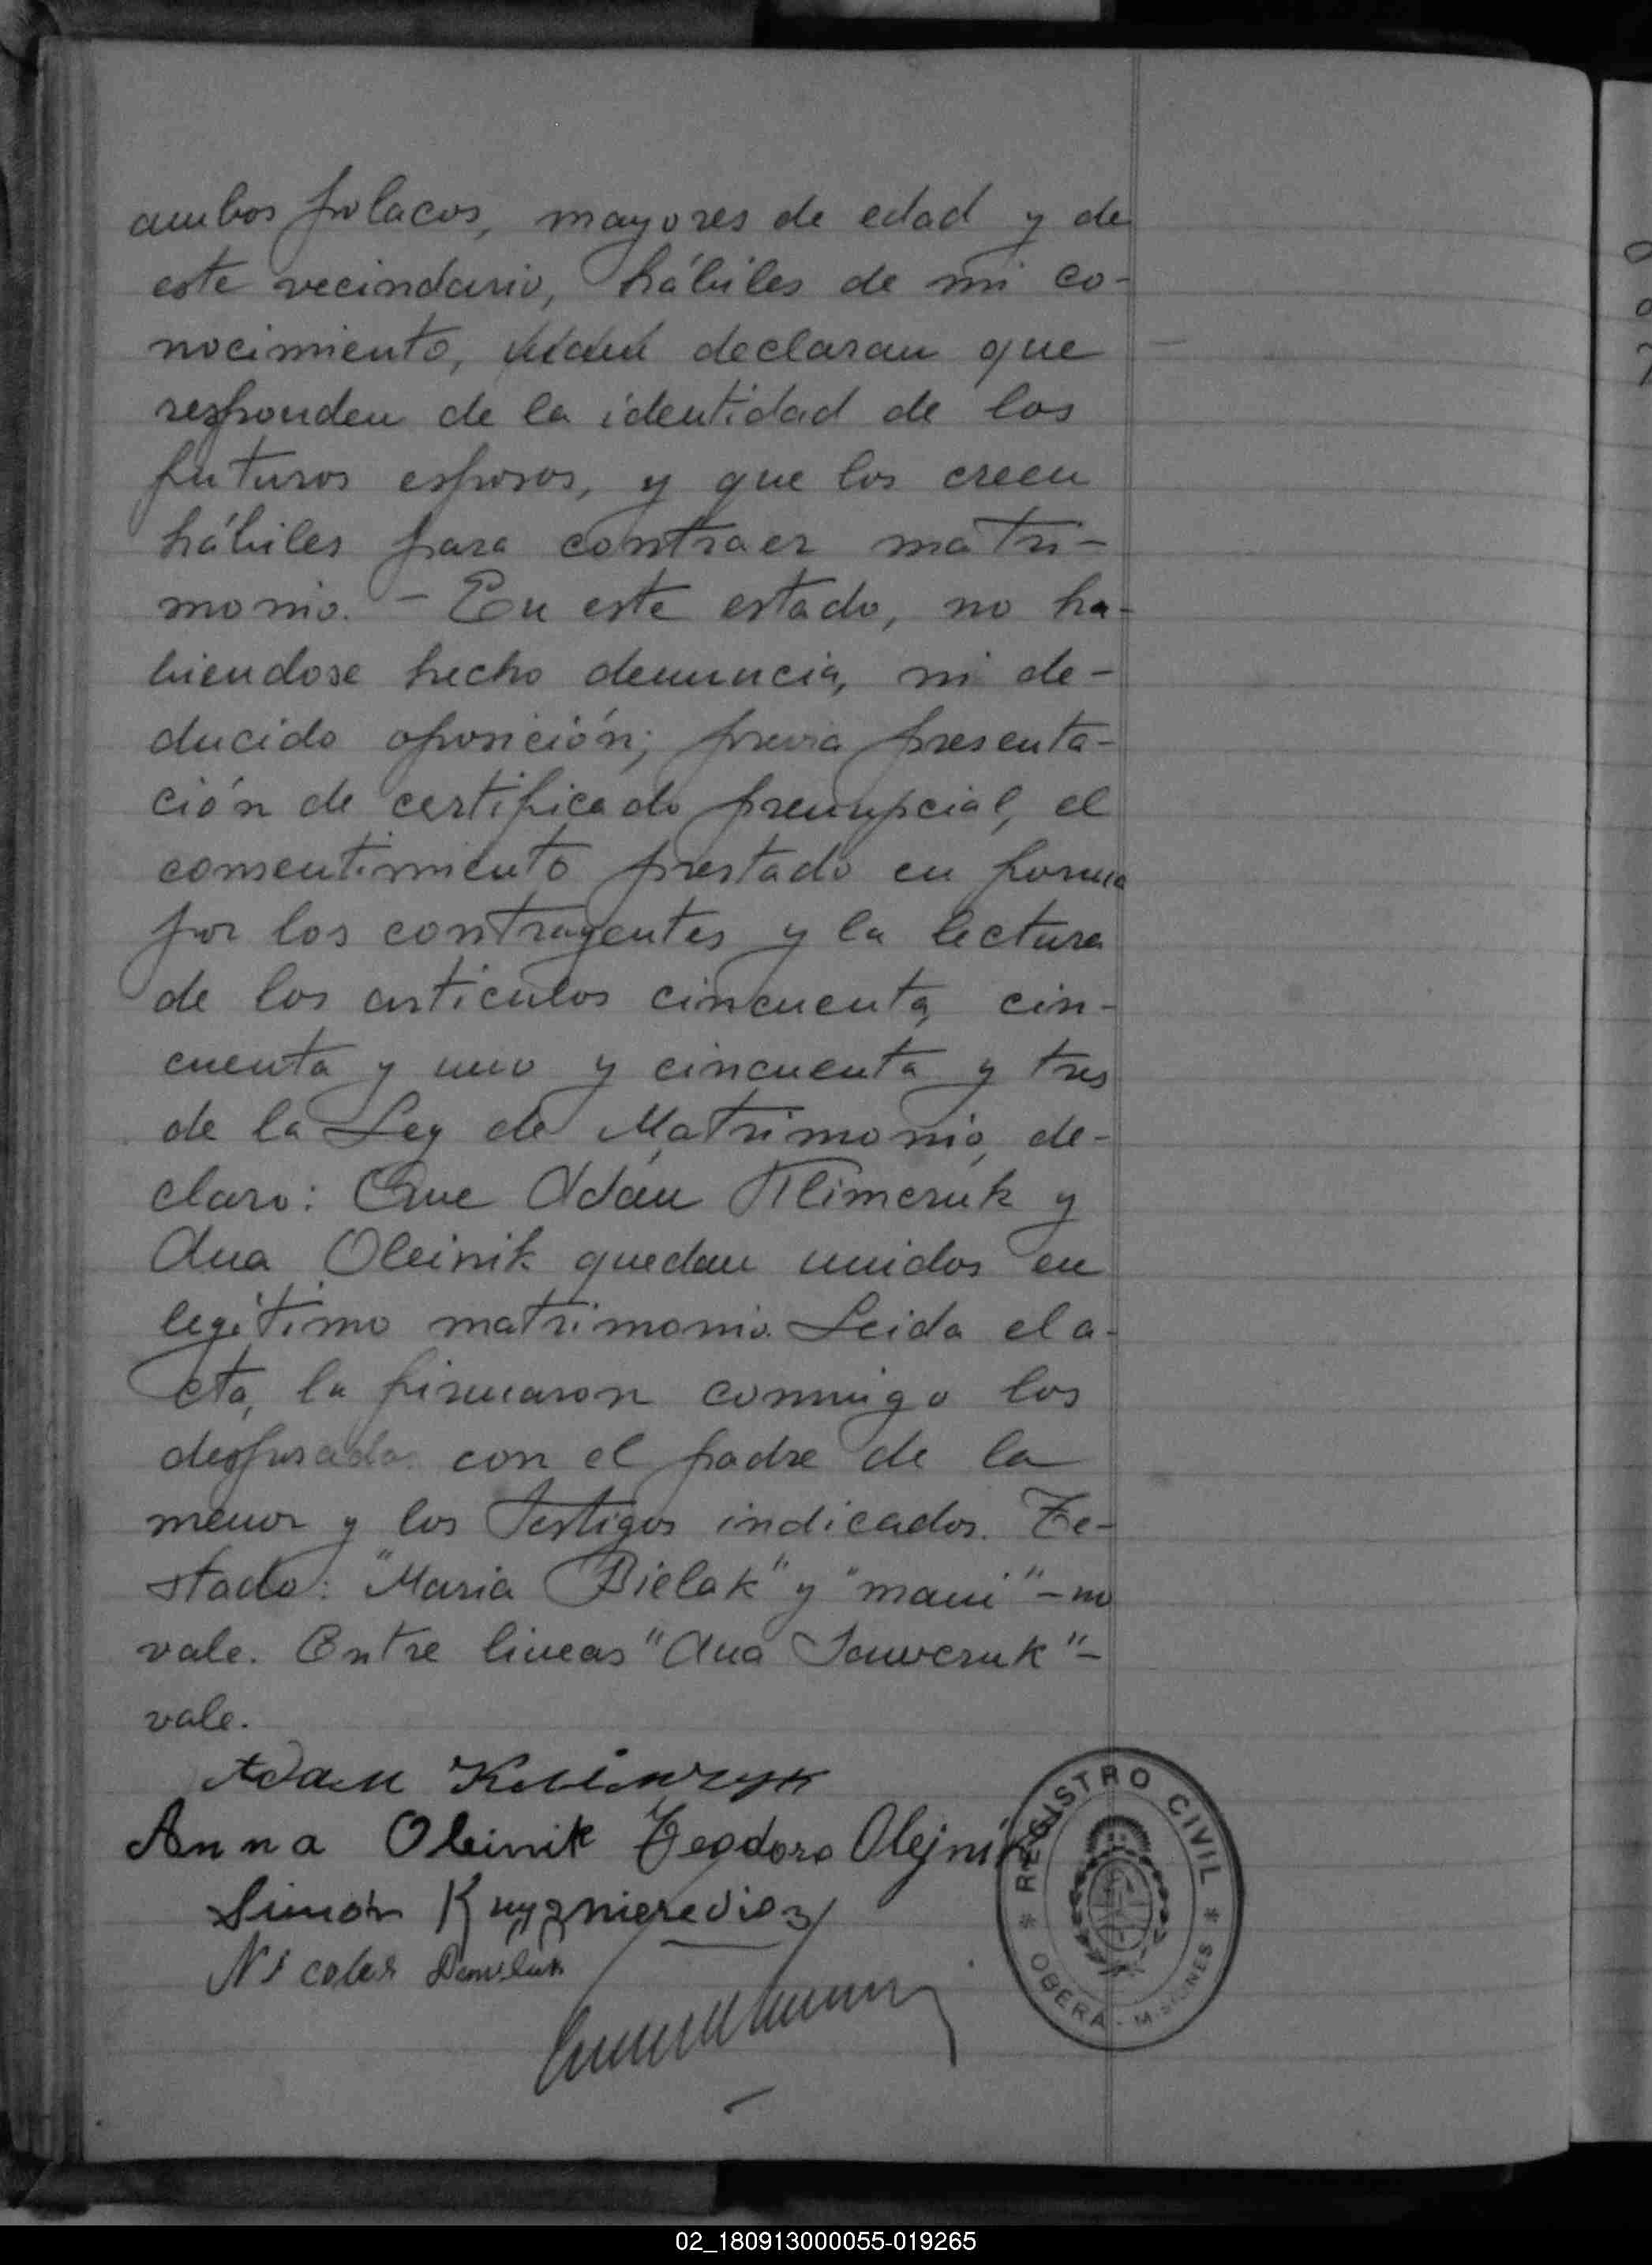 ambos polacos, mayores de edad y de
este vecindario, hábiles de mi co-
nocimiento, declaran que
responden de la identidad de los
futuros esposos, y que los creen
hábiles para contraer matri-
monio. - En este estado, no ha-
biendose hecho denuncia, ni de-
ducido oposición; previa presenta-
ción de certificado prenupcial, el
consentimiento prestado en forma
por los contrayentes y la lectura
de los articulos cincuenta, cin-
cuenta y uno y cincuenta y tres
de la Ley de Matrimonio, de-
claro: Que Adán Klimczuk y
Ana Oleinik quedan unidos en
legítimo matrimonio. Leida el a-
cta, la firmaron conmigo los
desposados con el padre de la
menor y los testigos indicados. Te-
stado: "Maria Bielak" y "mani" - no
vale. Entre lineas "Ana Sawczuk" -
vale.
Adam
Anna Oleinik Teodoro Olejnik
Simón
Nicolas Daniluk
REGISTRO CIVIL
* OBERÁ - MISIONES *
02_180913000055-019265